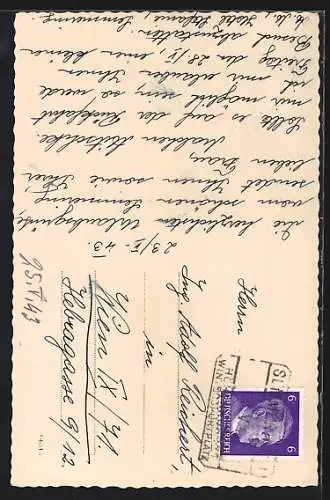 23/V. 43.
Die herzlichsten Urlaubsgrüße
vom schönen Semmering
sendet Ihnen sowie Ihrer
lieben Frau,
Sollte es auf der Rückfahrt
mir möglich sein, so werde
ich mir erlauben Ihnen
Freitag den 28/V. einen kleinen
Besuch abzustatten.
Hotel Stefanie, Semmering
Herrn
Ing. Adolf
in
Wien IX/71.
Hebragasse 9/12.
25.V.43
6 6
DEUTSCHES REICH